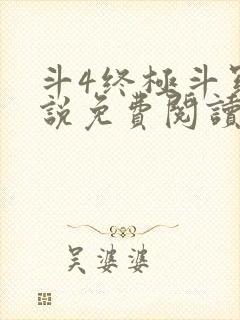 斗4终極斗
說免費閱讀
吴婆婆